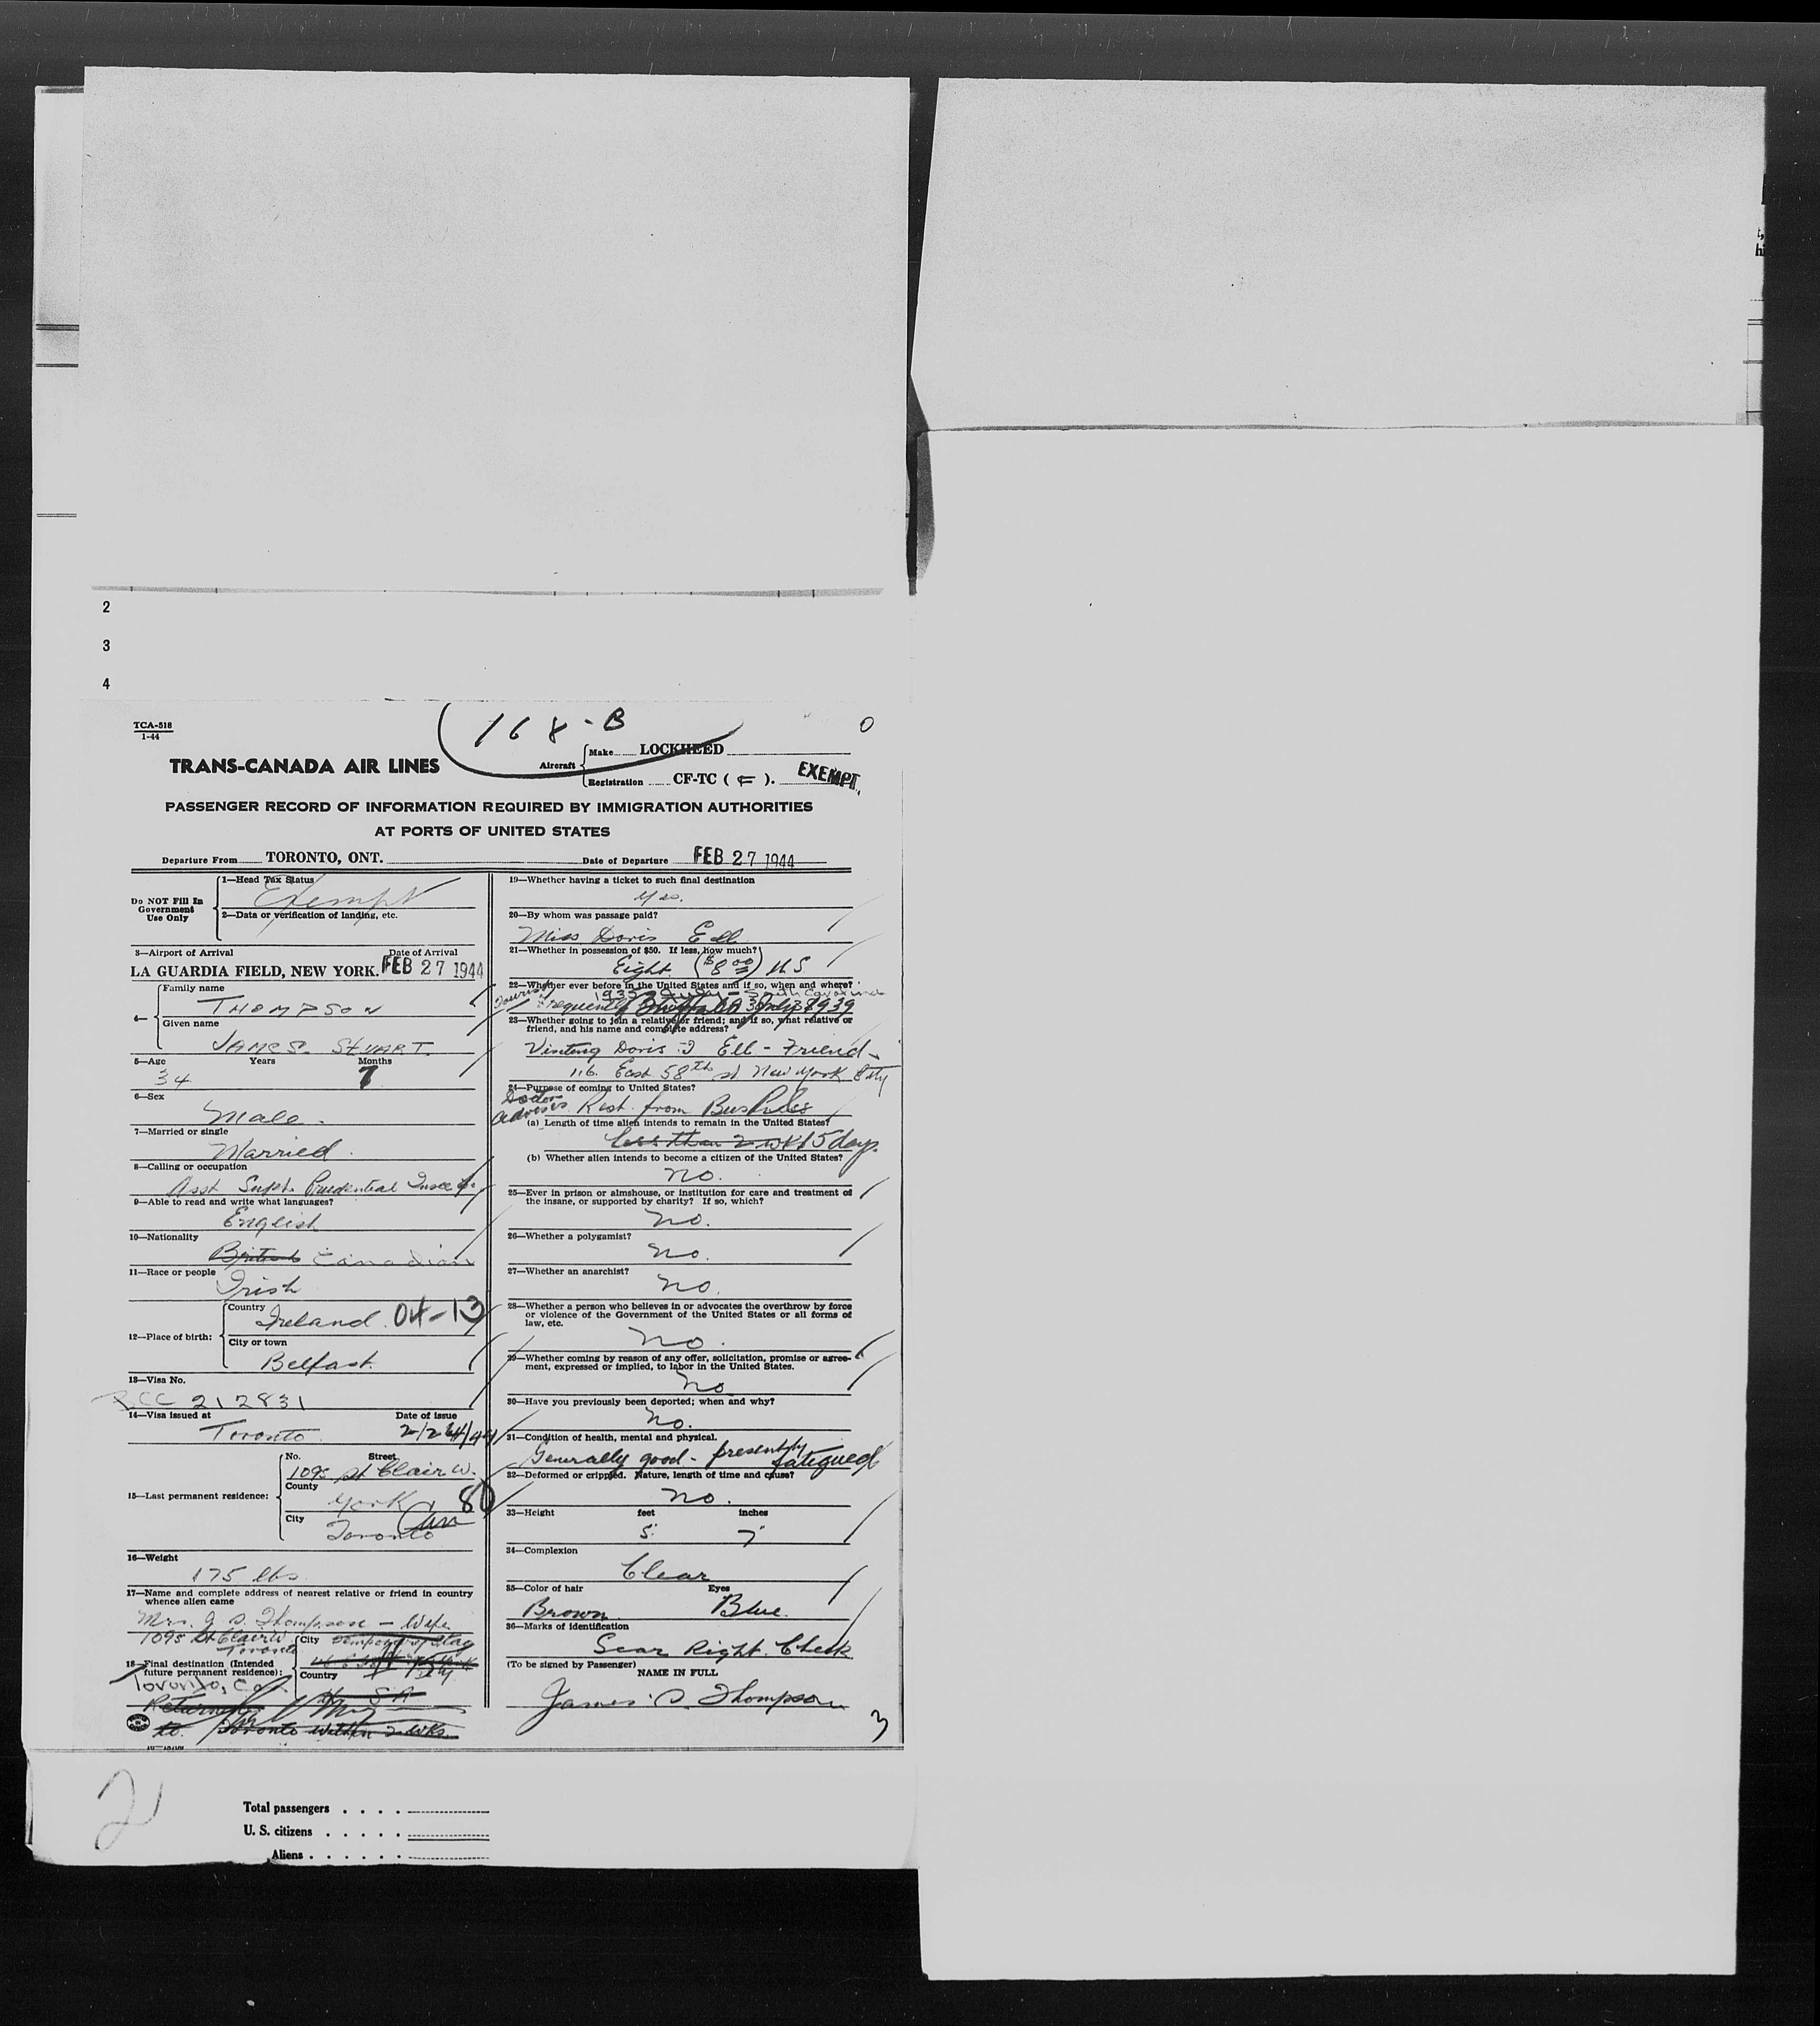 2
3
4
TCA-518
1-44
168-B
0
TRANS-CANADA AIR LINES
Aircraft
Make LOCKHEED
Registration CF-TC ( F ).
EXEMPT.
PASSENGER RECORD OF INFORMATION REQUIRED BY IMMIGRATION AUTHORITIES
AT PORTS OF UNITED STATES
Departure From TORONTO, ONT. Date of Departure FEB 27 1944
Do NOT Fill In
Government
Use Only
1—Head Tax Status
Exempt
2—Data or verification of landing, etc.
3—Airport of Arrival Date of Arrival
LA GUARDIA FIELD, NEW YORK. FEB 27 1944
4—
Family name
THOMPSON
Given name
JAMES. STUART.
5—Age Years Months
34 7
6—Sex
Male.
7—Married or single
Married.
8—Calling or occupation
Asst Supt. Prudential Insce Co.
9—Able to read and write what languages?
English
10—Nationality
British Canadian
11—Race or people
Irish
12—Place of birth:
Country
Ireland. 04-13
City or town
Belfast.
13—Visa No.
212831
14—Visa issued at Date of issue
Toronto. 2/24/44
15—Last permanent residence:
No. Street
1095 St Clair W.
County
York 80
City
Toronto Can
16—Weight
175 lbs
17—Name and complete address of nearest relative or friend in country
whence alien came
Mrs. J S. Thompson — Wife
1095 St Clair W.
Toronto
18—Final destination (Intended
future permanent residence):
City Temporary Stay
Country
U. S A
Toronto, Ca.
Returning
to Toronto within 2 wks.
19—Whether having a ticket to such final destination
Yes.
20—By whom was passage paid?
Miss Doris Ell
21—Whether in possession of $50. If less, how much?
Eight. ($8.00) U S.
22—Whether ever before in the United States and if so, when and where?
Tourist
Frequently Buffalo
23—Whether going to join a relative or friend; and if so, what relative or
friend, and his name and complete address?
Visiting Doris I Ell - Friend -
116. East 58th st New York City
24—Purpose of coming to United States?
Doctor
advises. Rest. from Business
(a) Length of time alien intends to remain in the United States?
less than 2 wk 15 days.
(b) Whether alien intends to become a citizen of the United States?
no.
25—Ever in prison or almshouse, or institution for care and treatment of
the insane, or supported by charity? If so, which?
no.
26—Whether a polygamist?
no.
27—Whether an anarchist?
no.
28—Whether a person who believes in or advocates the overthrow by force
or violence of the Government of the United States or all forms of
law, etc.
no.
29—Whether coming by reason of any offer, solicitation, promise or agree-
ment, expressed or implied, to labor in the United States.
no
30—Have you previously been deported; when and why?
no.
31—Condition of health, mental and physical.
Generally good - presently
fatigued
32—Deformed or crippled. Nature, length of time and cause?
no.
33—Height feet inches
5' 7"
34—Complexion
Clear
35—Color of hair Eyes
Brown. Blue.
36—Marks of identification
Scar Right. Cheek
(To be signed by Passenger)
NAME IN FULL
James. S Thompson
3
21
Total passengers
U. S. citizens
Aliens